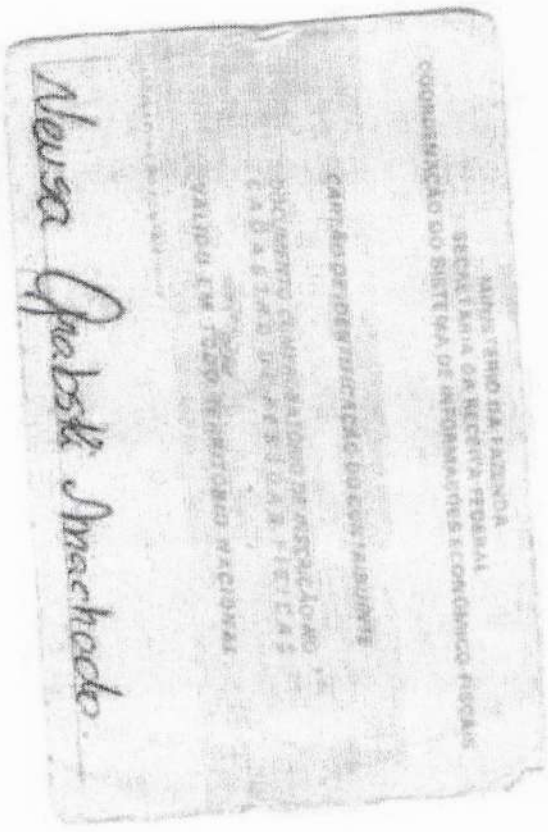 MINISTÉRIO DA FAZENDA
SECRETARIA DA RECEITA FEDERAL
COORDENAÇÃO DO SISTEMA DE INFORMAÇÕES ECONÔMICO-FISCAIS
CARTÃO DE IDENTIFICAÇÃO DO CONTRIBUINTE
DOCUMENTO COMPROBATÓRIO DE INSCRIÇÃO NO
CADASTRO DE PESSOAS FÍSICAS
VÁLIDO EM TODO TERRITÓRIO NACIONAL
Neusa